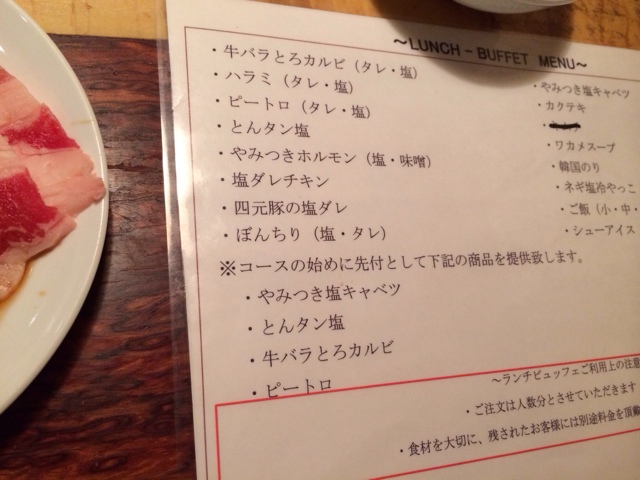 ~LUNCH-BUFFET MENU~
・牛バラとろカルビ（タレ・塩）
・ハラミ（タレ・塩）
・ピートロ（タレ・塩）
・とんタン塩
・やみつきホルモン（塩・味噌）
・塩ダレチキン
・四元豚の塩ダレ
・ぼんちり（塩・タレ）
・やみつき塩キャベツ
・カクテキ
・ワカメスープ
・韓国のり
・ネギ塩冷やっこ
・ご飯（小・中・
・シューアイス
※コースの始めに先付として下記の商品を提供致します。
・やみつき塩キャベツ
・とんタン塩
・牛バラとろカルビ
・ピートロ
~ランチビュッフェご利用上の注意
・ご注文は人数分とさせていただきます
・食材を大切に、残されたお客様には別途料金を頂戴